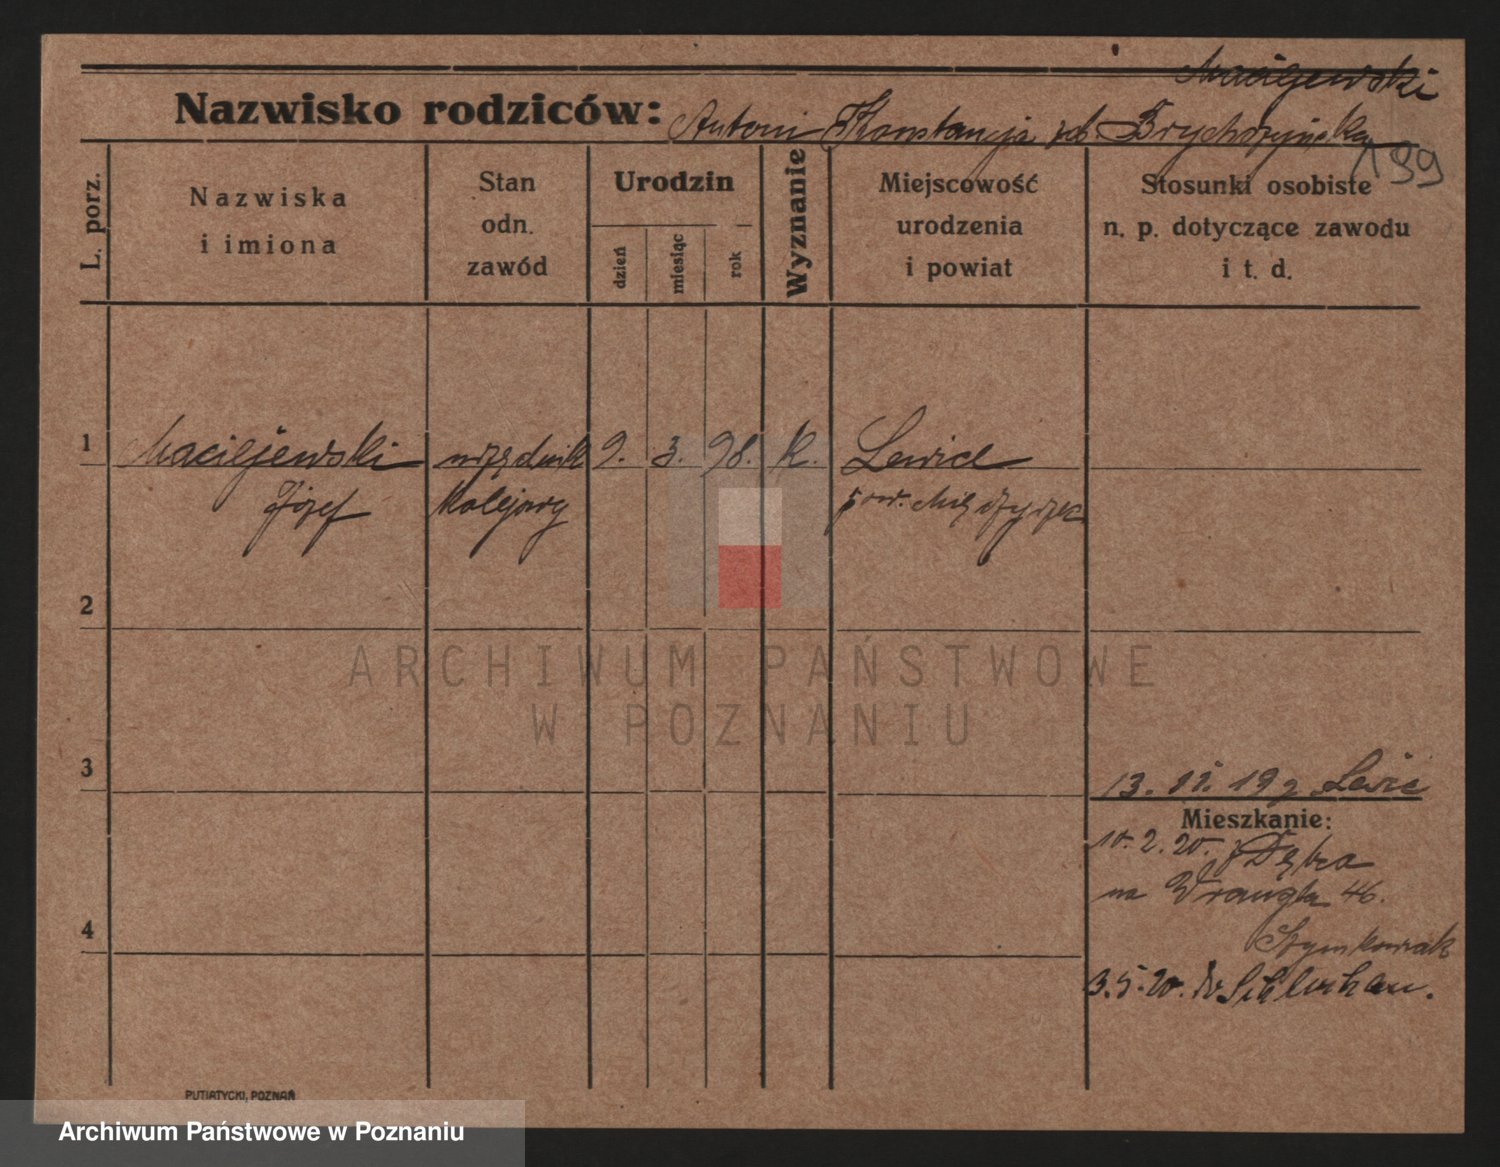 Maciejewski
Nazwisko rodziców: Antoni Konstancja
199
L. porz.
Nazwiska
i imiona
Stan
odn.
zawód
Urodzin
dzień
miesiąc
rok
Wyznanie
Miejscowość
urodzenia
i powiat
Stosunki osobiste
n. p. dotyczące zawodu
i t. d.
1 Maciejewski urzędnik 9. 3. 98. k. Lewice
Józef kolejowy pow. Międzyrzec
2
3
13. 11. 19 z Lewic
Mieszkanie:
10. 2. 20.
na Wrangla 46.
4
Szymkowiak
3. 5. 20. do
PUTIATYCKI, POZNAŃ
ARCHIWUM PAŃSTWOWE
W POZNANIU
Archiwum Państwowe w Poznaniu